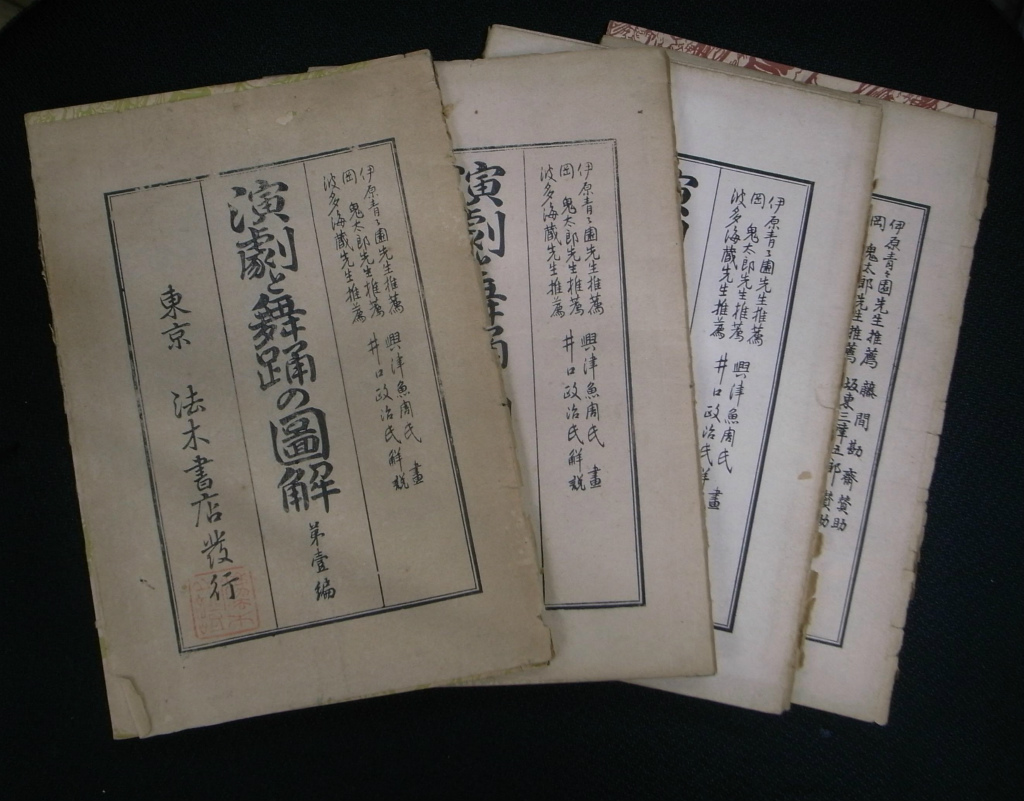 伊原青〻園先生推薦
岡 鬼太郎先生推薦
波多海蔵先生推薦
興津魚周氏 畫
井口政治氏解説
演劇と舞踊の圖解
第壹編
東京 法木書店發行
伊原青〻園先生推薦
岡 鬼太郎先生推薦
波多海蔵先生推薦
興津魚周氏 畫
井口政治氏解説
演劇と舞踊
伊原青〻園先生推薦
岡 鬼太郎先生推薦
波多海蔵先生推薦
興津魚周氏 畫
井口政治氏
演
伊原青〻園先生推薦
岡 鬼太郎先生推薦
藤間勘斎賛助
坂東三津五郎賛助